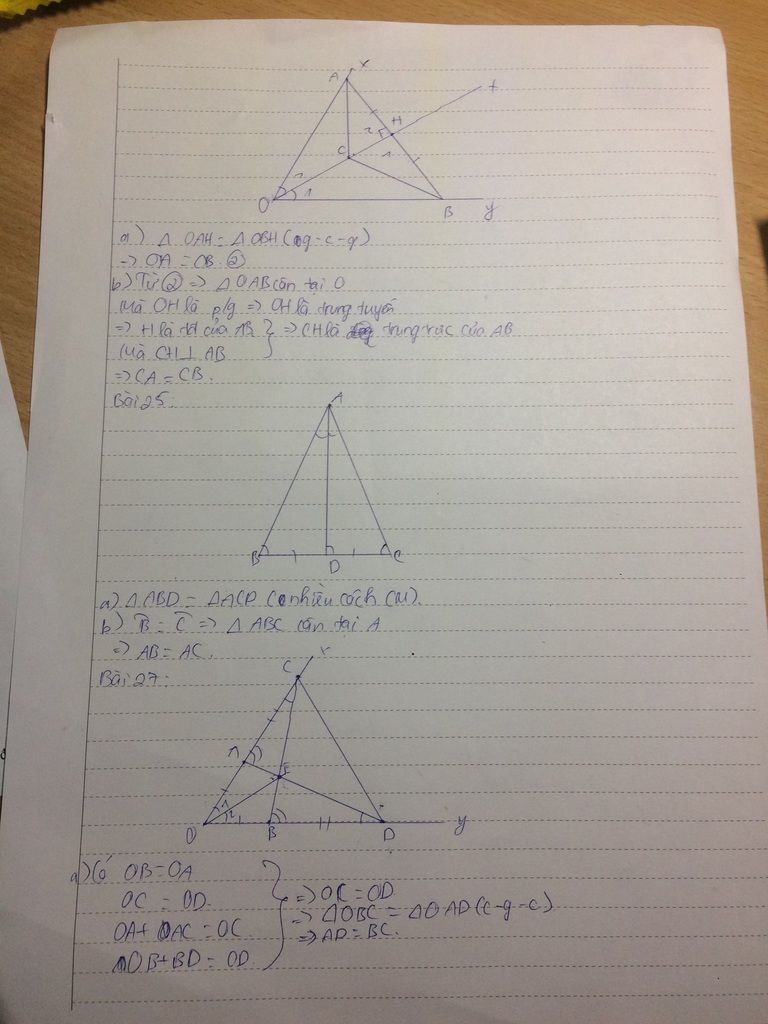 A x
t
H
2
C 1
1
1
O B y
a) Δ OAH = Δ OBH (g-c-g)
=> OA = OB. ②
b) Từ ② => Δ OAB cân tại O
Mà OH là p/g => OH là trung tuyến
=> H là tđ của AB } => CH là trung trực của AB
Mà CH ⊥ AB
=> CA = CB.
Bài 25:
A
B D C
a) Δ ABD = Δ ACD (nhiều cách CM).
b) B̂ = Ĉ => Δ ABC cân tại A
=> AB = AC.
Bài 27:
C x
A
E
1
2
O B D y
a) Có OB = OA
OC = OD } => OC = OD
OA + AC = OC => Δ OBC = Δ OAD (c-g-c)
OB + BD = OD => AD = BC.